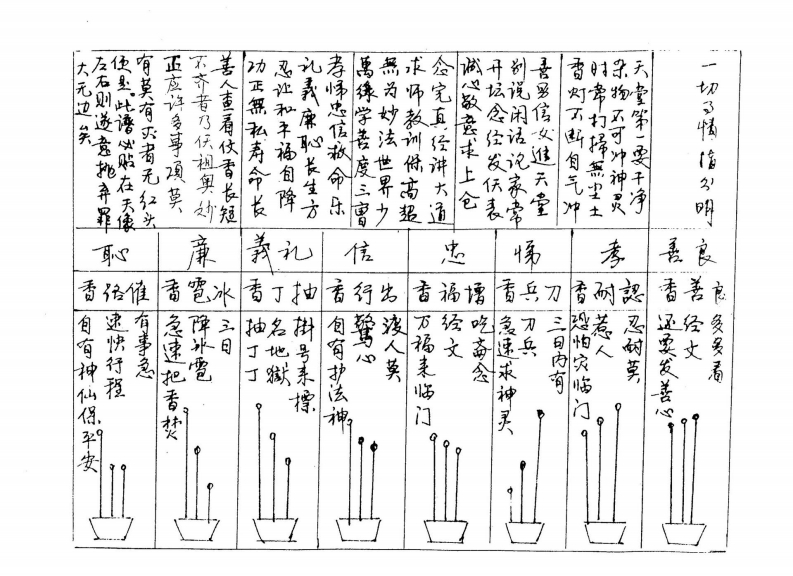 一切了情消分明
天堂第一要干净
杂物不可冲神灵
时常打掃無尘土
香灯不断自气冲
善男信女進天堂
别说闲话说家常
开坛念经发伏表
诚心敬意求上仓
念完真经讲大道
求师教训保高超
無为妙法世界少
萬缘学善度三曹
孝悌忠信救命乐
礼義廉恥长生方
忍让和平福自降
功正無私寿命长
善人查看仗香长短
不齐者乃伏祖奥妙
正应许多事项莫
有莫有灭者无红头
便是此谱必贴在天像
左右则遂意挑弃罪
大无边矣
良善
孝
悌
忠
信
礼義
廉
恥
良善香
認耐香
刀兵香
增福香
出行香
抽丁香
冰雹香
催洛香
多多看
经文
还要发善心
忍耐莫
惹人
恐怕灾临门
三日内有
刀兵
急速求神灵
吃斋念
经文
万福来临门
渡人莫
驚心
自有护法神
掛号来標
名地獄
抽丁丁
三日
降冰雹
急速把香焚
有事急
速快行程
自有神仙保平安